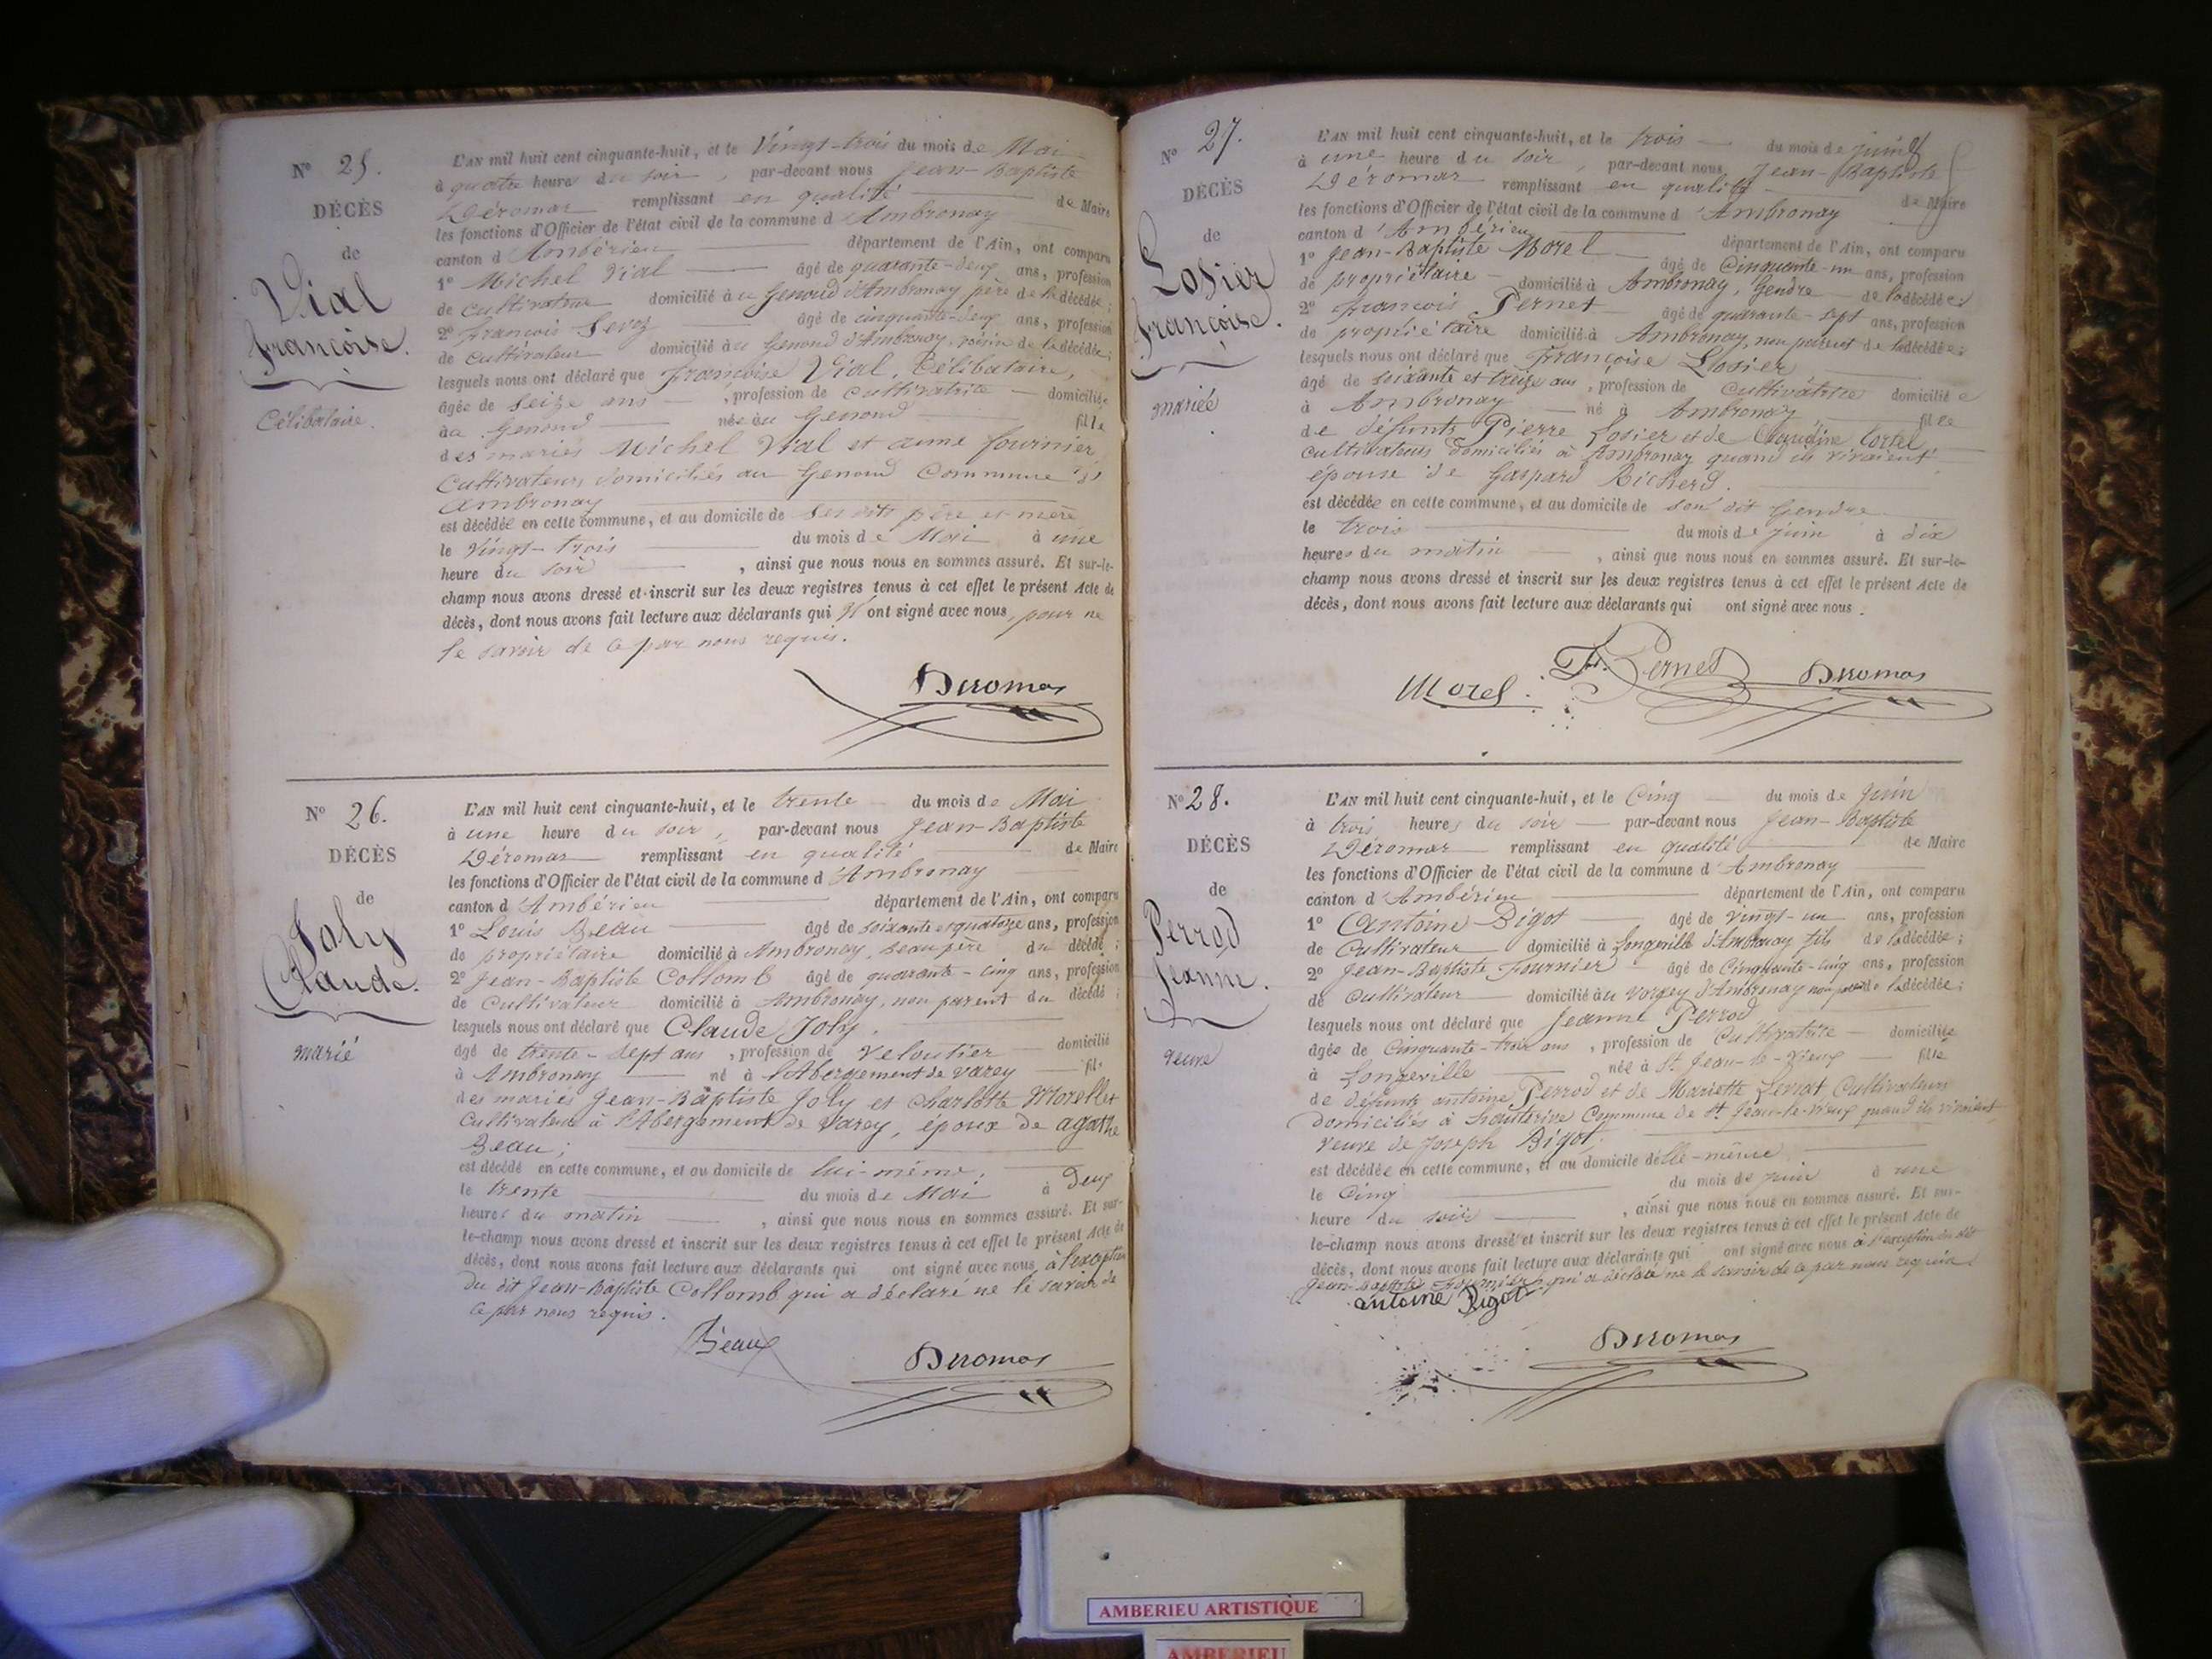 N° 25.
DÉCÈS
de
Vial
françoise.
Célibataire.
L'AN mil huit cent cinquante-huit, et le Vingt-trois du mois de Mai
à quatre heures du soir, par-devant nous Jean-Baptiste
Déromas remplissant en qualité de Maire
les fonctions d'Officier de l'état civil de la commune d'Ambronay
canton d'Ambérieu département de l'Ain, ont comparu
1° Michel Vial âgé de quarante-deux ans, profession
de cultivateur domicilié au Genoud d'Ambronay père de la décédée;
2° François âgé de cinquante-deux ans, profession
de cultivateur domicilié au Genoud d'Ambronay, voisin de la décédée;
lesquels nous ont déclaré que Françoise Vial, Célibataire,
âgée de seize ans, profession de cultivatrice domiciliée
au Genoud née au Genoud fille
des mariés Michel Vial et anne fournier,
Cultivateurs domiciliés au Genoud Commune d'
Ambronay
est décédée en cette commune, et au domicile de ses dits père et mère
le vingt-trois du mois de Mai à une
heure du soir, ainsi que nous nous en sommes assuré. Et sur-le-
champ nous avons dressé et inscrit sur les deux registres tenus à cet effet le présent Acte de
décès, dont nous avons fait lecture aux déclarants qui n'ont signé avec nous, pour ne
le savoir de ce par nous requis.
Deromas
N° 26.
DÉCÈS
de
Joly
Claude.
marié
L'AN mil huit cent cinquante-huit, et le trente du mois de Mai
à une heure du soir, par-devant nous Jean-Baptiste
Déromas remplissant en qualité de Maire
les fonctions d'Officier de l'état civil de la commune d'Ambronay
canton d'Ambérieu département de l'Ain, ont comparu
1° Louis Beau âgé de soixante et quatorze ans, profession
de propriétaire domicilié à Ambronay, beau père du décédé;
2° Jean-Baptiste Collomb âgé de quarante-cinq ans, profession
de Cultivateur domicilié à Ambronay, non parent du décédé;
lesquels nous ont déclaré que Claude Joly.
âgé de trente-sept ans, profession de veloutier domicilié
à Ambronay né à l'Abergement de varey fils
des mariés Jean-Baptiste Joly et Charlotte Morellet
Cultivateurs à l'Abergement de Varey, époux de agathe
Beau;
est décédé en cette commune, et au domicile de lui-même.
le trente du mois de Mai à Deux
heures du matin, ainsi que nous nous en sommes assuré. Et sur-
le-champ nous avons dressé et inscrit sur les deux registres tenus à cet effet le présent Acte de
décès, dont nous avons fait lecture aux déclarants qui ont signé avec nous à l'exception
du dit Jean-Baptiste Collomb qui a déclaré ne le savoir de
ce par nous requis.
Beau
Deromas
N° 27.
DÉCÈS
de
Losier
françoise.
mariée
L'AN mil huit cent cinquante-huit, et le trois du mois de juin
à une heure du soir, par-devant nous Jean-Baptiste
Déromas remplissant en qualité de Maire
les fonctions d'Officier de l'état civil de la commune d'Ambronay
canton d'Ambérieu département de l'Ain, ont comparu
1° Jean-Baptiste Morel âgé de Cinquante-un ans, profession
de propriétaire domicilié à Ambronay, Gendre de la décédée;
2° françois Pernet âgé de quarante-sept ans, profession
de propriétaire domicilié à Ambronay, non parent de la décédée;
lesquels nous ont déclaré que Françoise Losier
âgé de soixante et treize ans, profession de cultivatrice domiciliée
à Ambronay né à Ambronay fille
de défunts Pierre Losier et de Claudine
cultivateurs domiciliés à Ambronay quand ils vivaient
épouse de Gaspard Richerd.
est décédée en cette commune, et au domicile de son dit Gendre
le trois du mois de juin à dix
heures du matin, ainsi que nous nous en sommes assuré. Et sur-le-
champ nous avons dressé et inscrit sur les deux registres tenus à cet effet le présent Acte de
décès, dont nous avons fait lecture aux déclarants qui ont signé avec nous.
Morel. F. Pernet Deromas
N° 28.
DÉCÈS
de
Perrod
Jeanne.
veuve
L'AN mil huit cent cinquante-huit, et le Cinq du mois de Juin
à trois heures du soir par-devant nous Jean-Baptiste
Déromas remplissant en qualité de Maire
les fonctions d'Officier de l'état civil de la commune d'Ambronay
canton d'Ambérieu département de l'Ain, ont comparu
1° Antoine Bigot âgé de vingt-un ans, profession
de Cultivateur domicilié à Longeville d'Ambronay fils de la décédée;
2° Jean-Baptiste Fournier âgé de Cinquante-cinq ans, profession
de Cultivateur domicilié au vorgey d'Ambronay non parent de la décédée;
lesquels nous ont déclaré que Jeanne Perrod
âgée de Cinquante-trois ans, profession de Cultivatrice domiciliée
à Longeville née à St Jean-le-Vieux fille
de défunts antoine Perrod et de Mariette Cultivateurs
domiciliés à hauterive Commune de St Jean-le-vieux quand ils vivaient
veuve de Joseph Bigot,
est décédée en cette commune, et au domicile d'elle-même
le Cinq du mois de juin à une
heure du soir, ainsi que nous nous en sommes assuré. Et sur-
le-champ nous avons dressé et inscrit sur les deux registres tenus à cet effet le présent Acte de
décès, dont nous avons fait lecture aux déclarants qui ont signé avec nous à l'exception du dit
Jean-Baptiste Fournier qui a déclaré ne le savoir de ce par nous requis.
antoine Bigot
Deromas
AMBERIEU ARTISTIQUE
AMBERIEU